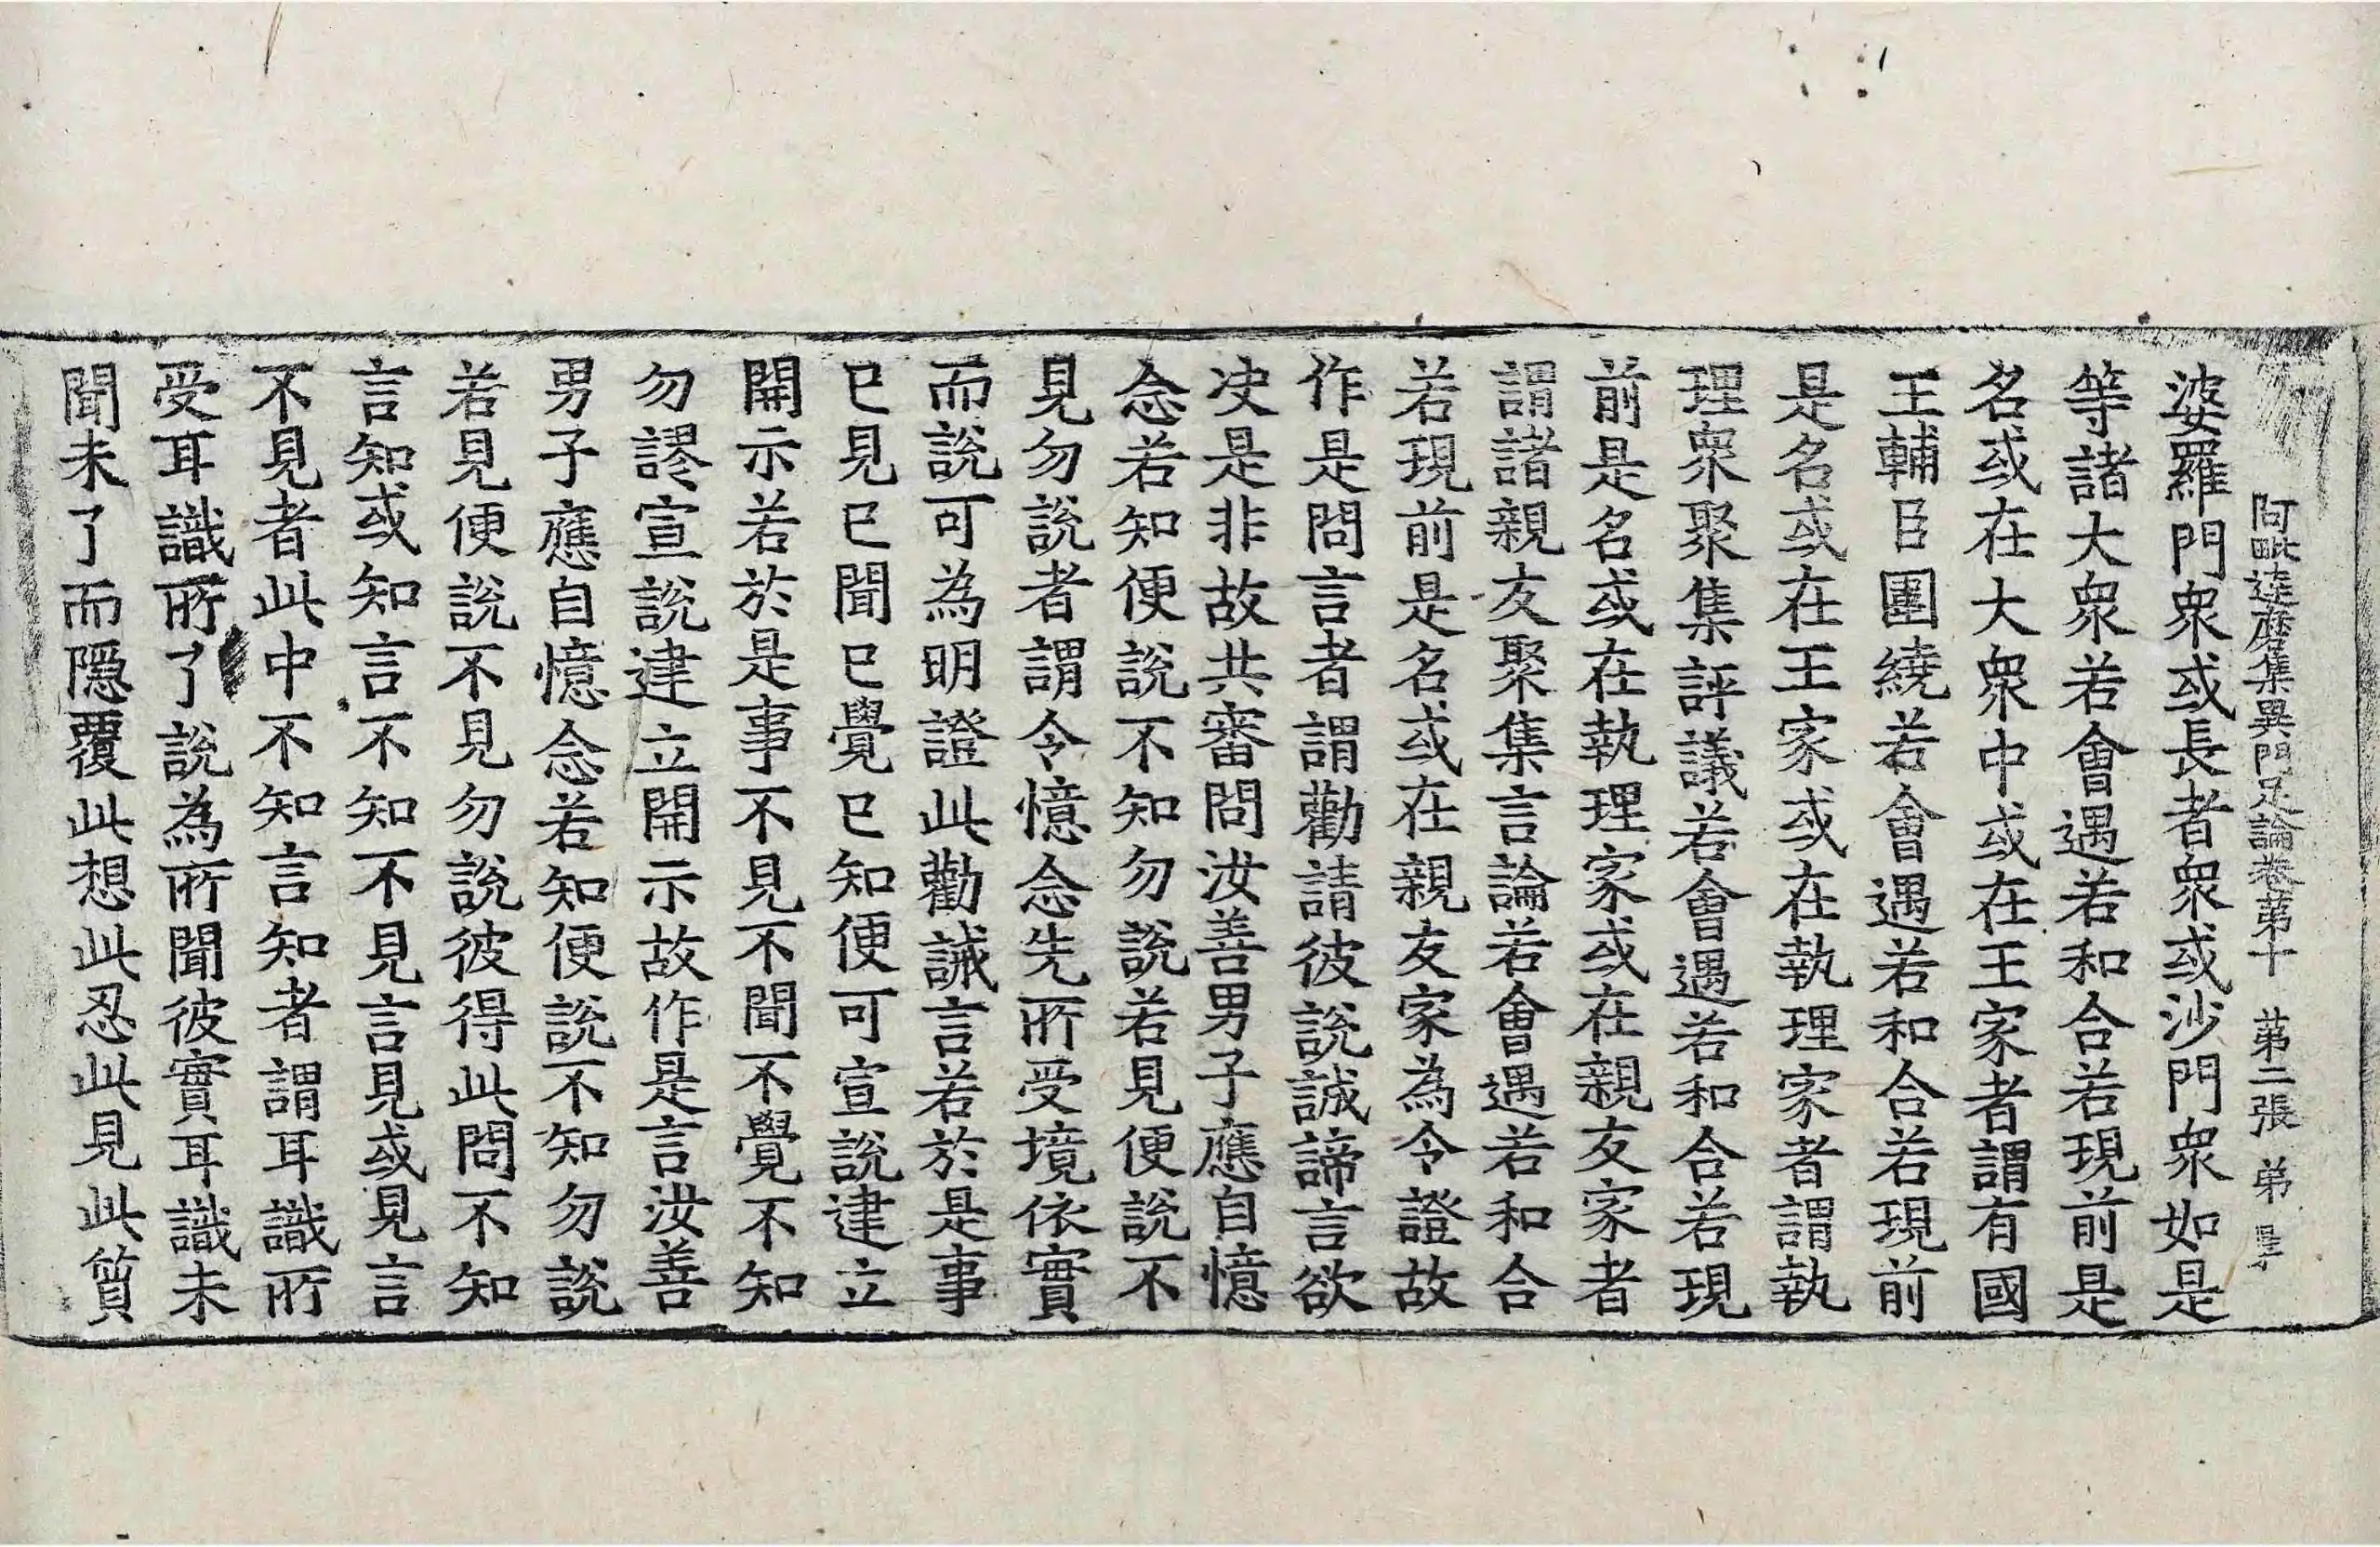 阿毗達磨集異門足論卷第十 第二張 弟
婆羅門衆或長者衆或沙門衆如是
等諸大衆若會遇若和合若現前是
名或在大衆中或在王家者謂有國
王輔臣圍繞若會遇若和合若現前
是名或在王家或在執理家者謂執
理衆聚集評議若會遇若和合若現
前是名或在執理家或在親友家者
謂諸親友聚集言論若會遇若和合
若現前是名或在親友家為令證故
作是問言者謂勸請彼說誠諦言欲
决是非故共審問汝善男子應自憶
念若知便說不知勿說若見便說不
見勿說者謂令憶念先所受境依實
而說可為明證此勸誡言若於是事
已見已聞已覺已知便可宣說建立
開示若於是事不見不聞不覺不知
勿謬宣說建立開示故作是言汝善
男子應自憶念若知便說不知勿說
若見便說不見勿說彼得此問不知
言知或知言不知不見言見或見言
不見者此中不知言知者謂耳識所
受耳識所了說為所聞彼實耳識未
聞未了而隱覆此想此忍此見此質